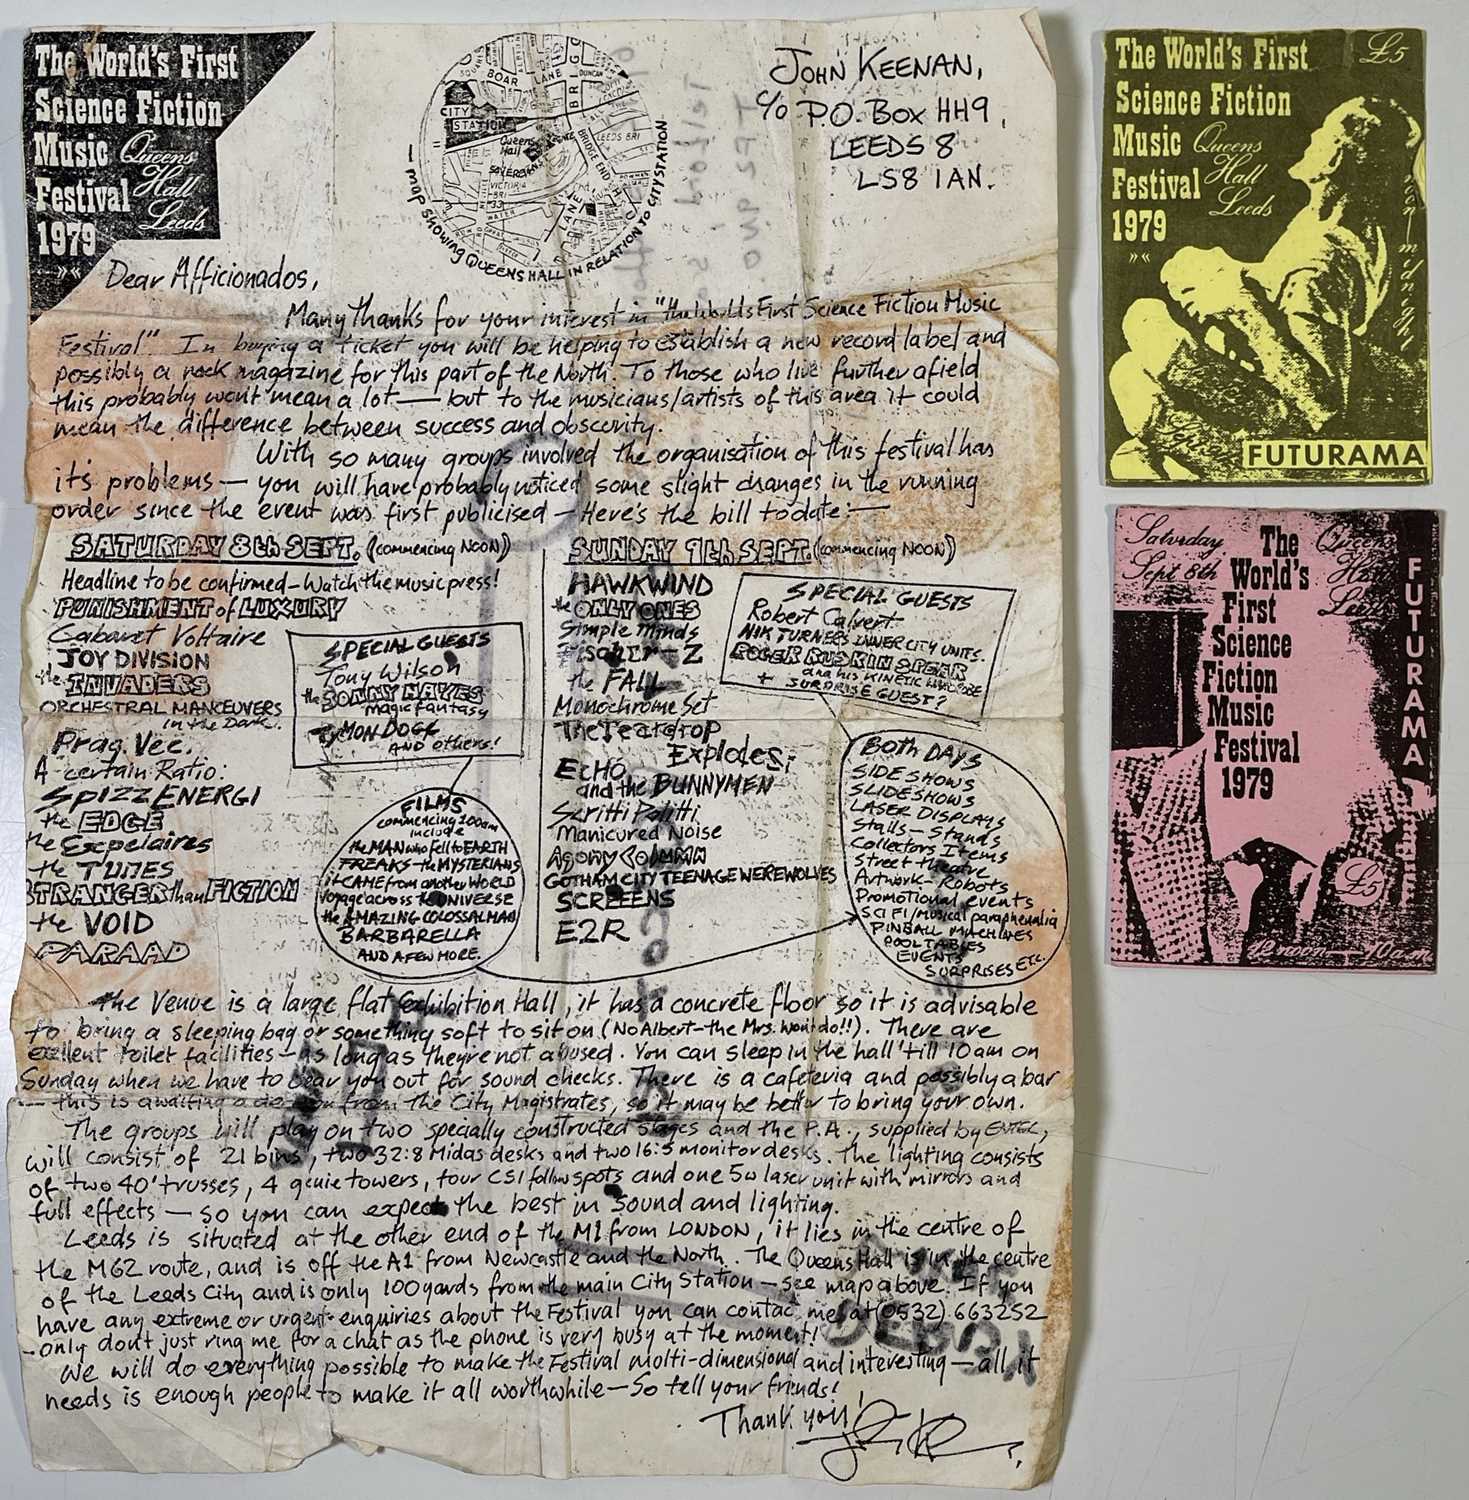 The World's First
Science Fiction
Music Queens
Festival Hall
1979 Leeds
BOAR LANE
BRIG
DUNCAN
CITY
STATION
Queens
Hall
SOVEREIGN
LEEDS BRI
BRIDGE END
VICTORIA
WATER
LANE
— MAP SHOWING QUEENS HALL IN RELATION TO CITY STATION
JOHN KEENAN,
c/o P.O. Box HH9,
LEEDS 8
LS8 1AN.
Dear Afficionados,
Many thanks for your interest in "the Worlds First Science Fiction Music
Festival". In buying a ticket you will be helping to establish a new record label and
possibly a rock magazine for this part of the North. To those who live further afield
this probably won't mean a lot — but to the musicians/artists of this area it could
mean the difference between success and obscurity.
With so many groups involved the organisation of this festival has
it's problems — you will have probably noticed some slight changes in the running
order since the event was first publicised — Here's the bill to date:—
SATURDAY 8th SEPT. (commencing NOON)
Headline to be confirmed - Watch the music press!
PUNISHMENT of LUXURY
Cabaret Voltaire
JOY DIVISION
the INVADERS
ORCHESTRAL MANŒUVERS
in the Dark.
Prag Vec.
A certain Ratio:
SPIZZ ENERGI
the EDGE
the Expelaires
the TUNES
STRANGER than FICTION
the VOID
PARAAD
SPECIAL GUESTS
Tony Wilson
the SONNY HAYES
magic fantasy
TYMON DOGG
AND others!
FILMS
commencing 2.00am
include
the MAN who fell to EARTH
FREAKS — the MYSTERIANS
it CAME from another WORLD
Voyage across the UNIVERSE
the AMAZING COLOSSAL MAN
BARBARELLA
AND A FEW MORE.
SUNDAY 9th SEPT. (commencing NOON)
HAWKWIND
the ONLY ONES
Simple Minds
Fischer-Z
the FALL
Monochrome Set
The Teardrop
Explodes;
ECHO
and the BUNNYMEN
Scritti Politti
Manicured Noise
Agony Column
GOTHAM CITY TEENAGE WEREWOLVES
SCREEENS
E2R
SPECIAL GUESTS
Robert Calvert
NIK TURNERS INNER CITY UNITS.
ROGER RUSKIN SPEAR
and his KINETIC WARDROBE
+ SURPRISE GUEST?
BOTH DAYS
SIDESHOWS
SLIDESHOWS
LASER DISPLAYS
Stalls — Stands
Collectors Items
Street theatre
Artwork - Robots
Promotional events
SCI FI/Musical paraphenalia
PINBALL MACHINES
POOL TABLES
EVENTS
SURPRISES ETC.
the Venue is a large flat Exhibition Hall, it has a concrete floor so it is advisable
to bring a sleeping bag or something soft to sit on (No Albert - the Mrs. Won't do!!). There are
exellent toilet facilities — as long as theyre not abused. You can sleep in the hall 'till 10 am on
Sunday when we have to clear you out for sound checks. There is a cafeteria and possibly a bar
— this is awaiting a decision from the City Magistrates, so it may be better to bring your own.
The groups will play on two specially constructed stages and the P.A., supplied by ENTEC,
will consist of 21 bins, two 32:8 Midas desks and two 16:5 monitor desks. The lighting consists
of two 40' trusses, 4 genie towers, four CSI follow spots and one 5w laser unit with mirrors and
full effects — so you can expect the best in sound and lighting.
Leeds is situated at the other end of the M1 from LONDON, it lies in the centre of
the M62 route, and is off the A1 from Newcastle and the North. The Queens Hall is in the centre
of the Leeds City and is only 100 yards from the main City Station — see map above. If you
have any extreme or urgent enquiries about the Festival you can contact me at (0532) 663252
- only don't just ring me for a chat as the phone is very busy at the moment!
We will do everything possible to make the Festival molti-dimensional and interesting — all it
needs is enough people to make it all worthwhile — So tell your friends!
Thank you!
The World's First
Science Fiction
Music Queens
Festival Hall
1979 Leeds
£5
noon - midnight
FUTURAMA
Saturday
Sept 8th
The
World's
First
Science
Fiction
Music
Festival
1979
Queens
Hall
Leeds
FUTURAMA
£5
12 noon — 10 a.m